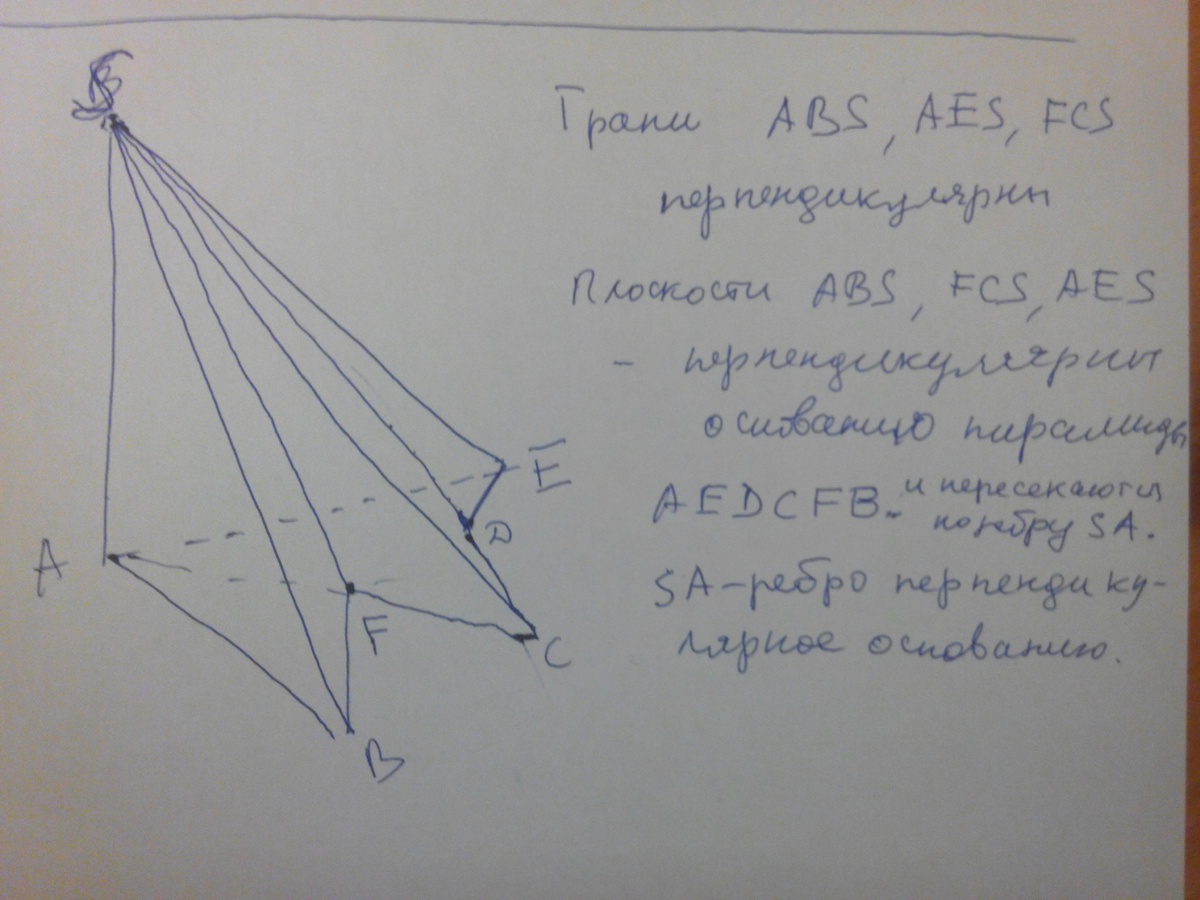 S
Грани ABS, AES, FCS
перпендикулярны
Плоскости ABS, FCS, AES
- перпендикулярны
основанию пирамиды
AEDCFB и пересекаются
по ребру SA.
SA-ребро перпендику-
лярное основанию.
E
D
A
F
C
B